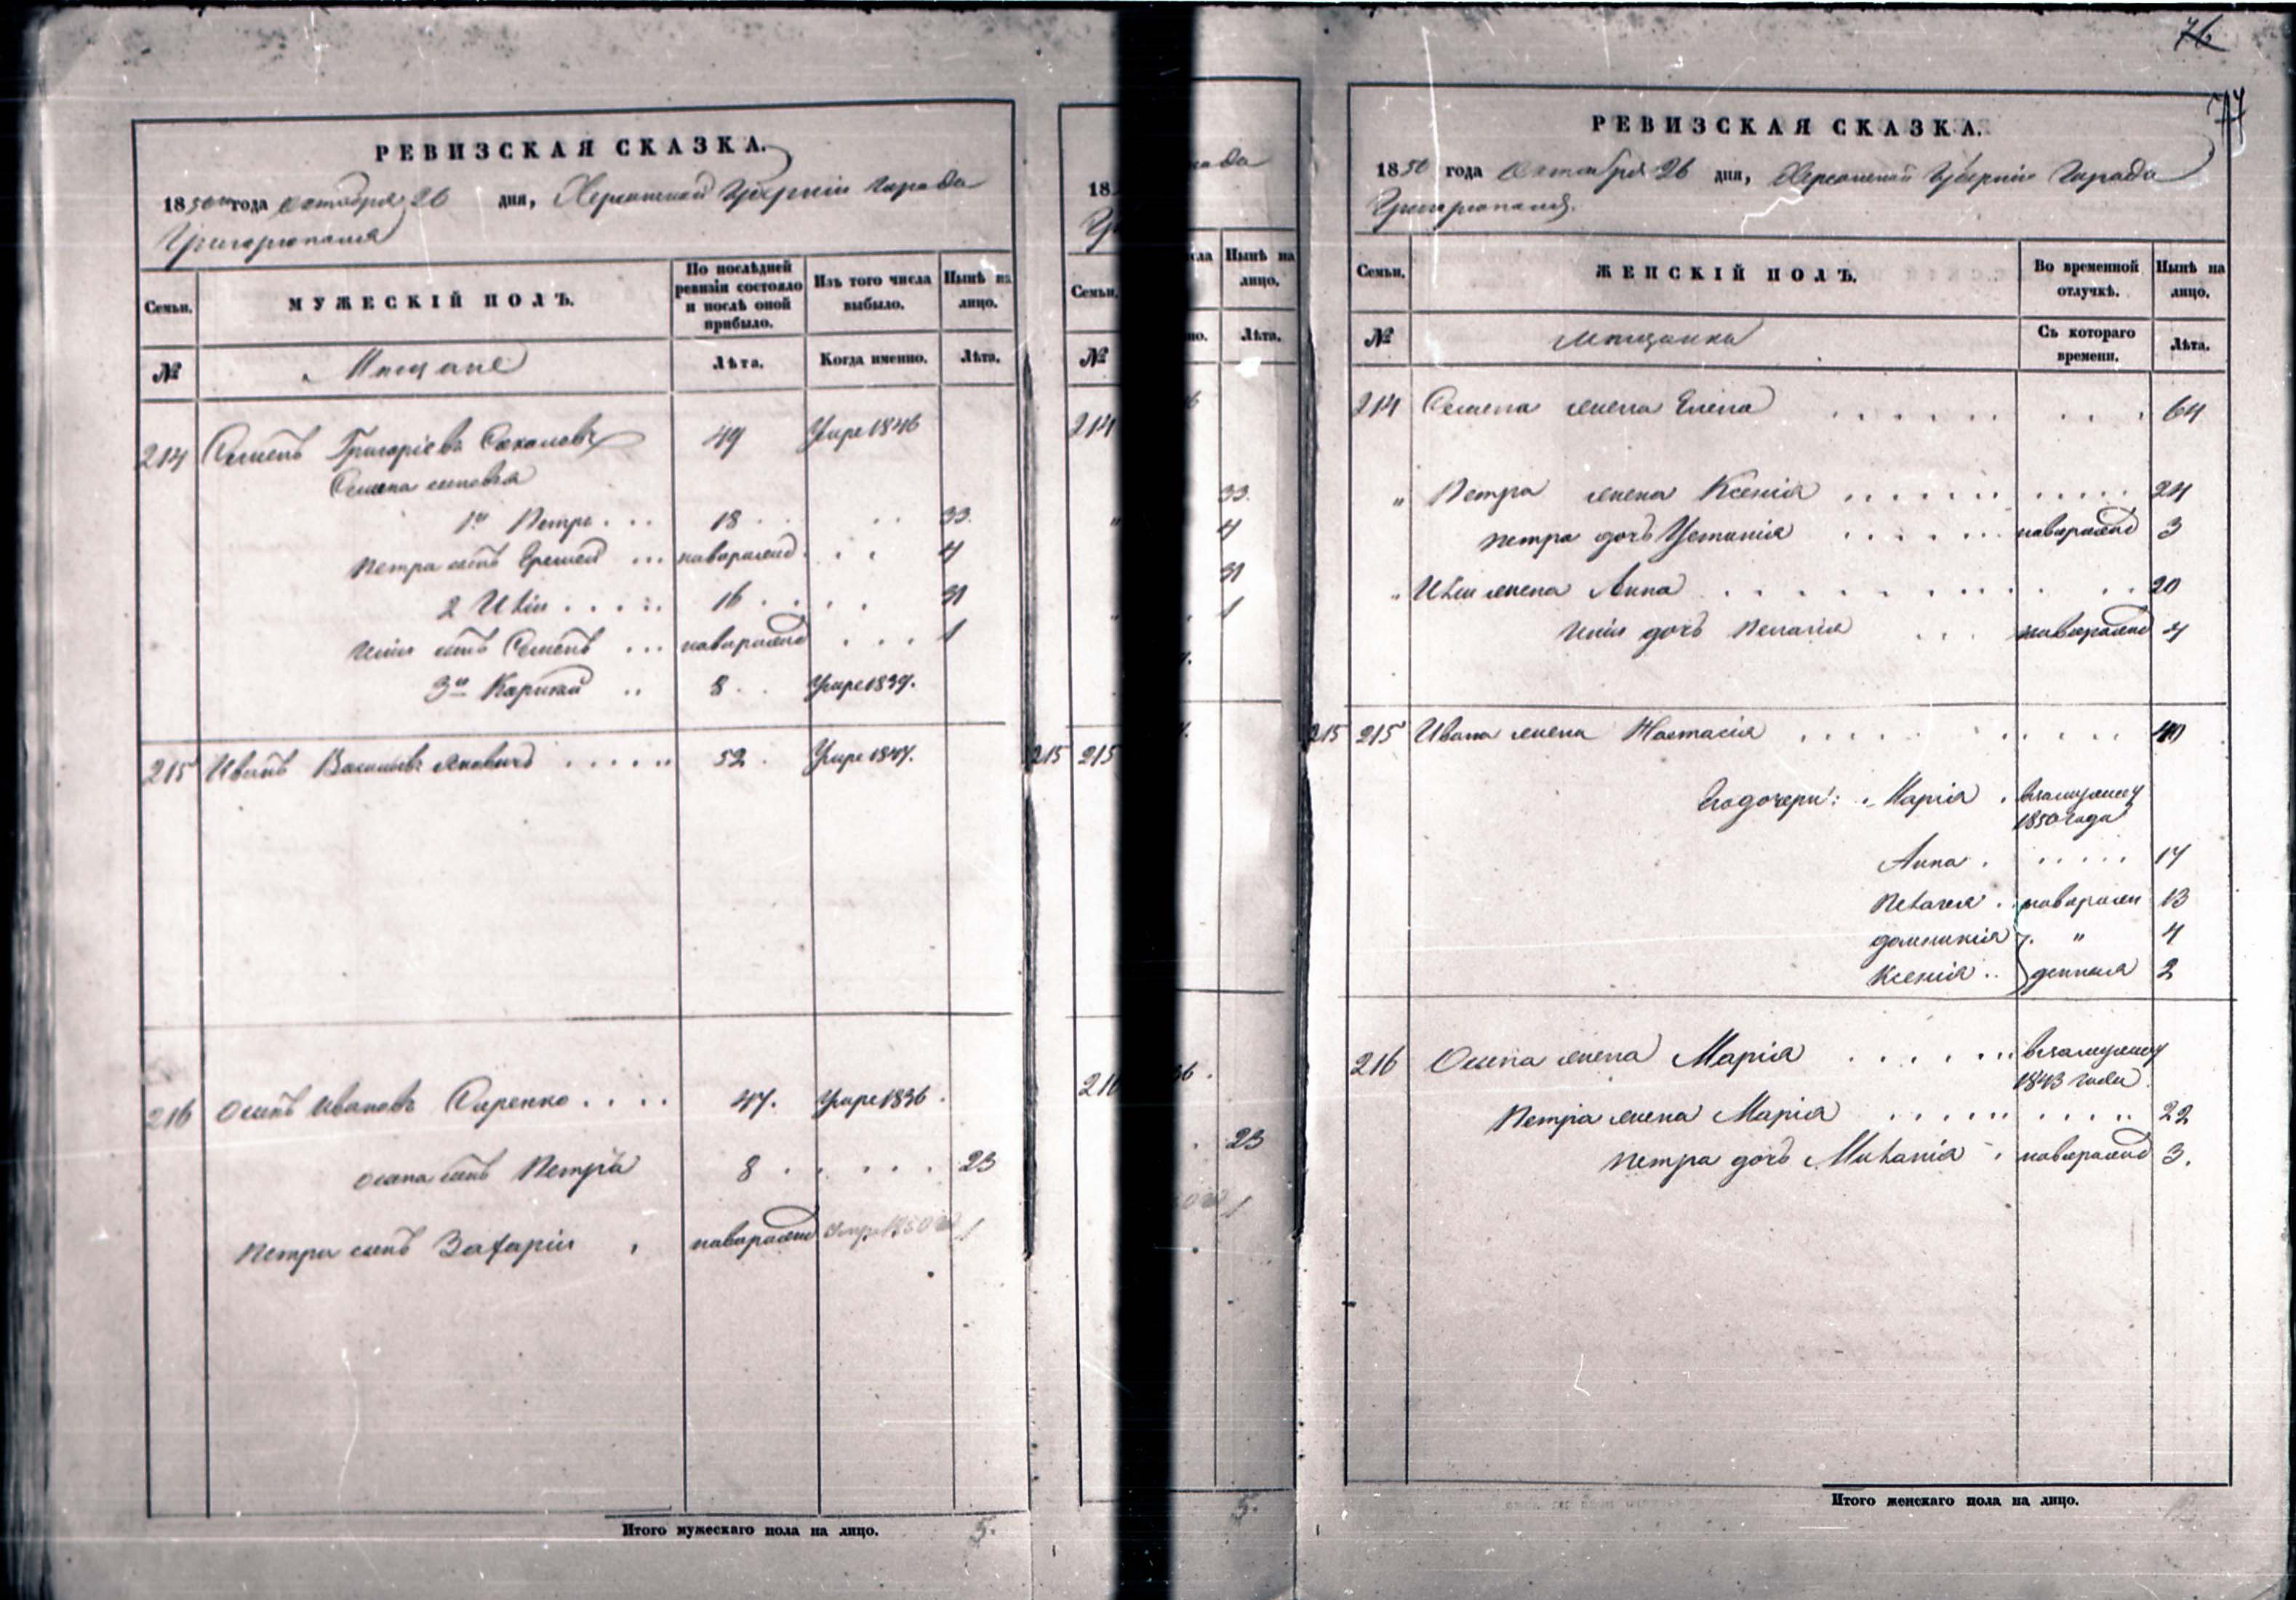 РЕВИЗСКАЯ СКАЗКА.
1850го года Октября 26 дня, Херсонской Губернии города
Григориополя
Семьи. МУЖЕСКІЙ ПОЛЪ. По послѣдней ревизіи состояло и послѣ оной прибыло. Изъ того числа выбыло. Нынѣ на лицо.
№ Мещане Лѣта. Когда именно. Лѣта.
214 Семенъ Григоріевъ 49 Умре 1846
Семена сыновья
1й Петръ . . . 18 . . . . 33.
Петра сынъ Еремей ... наворожд . . . 4
2 Илія . . . . . 16 . . . . 31
Иліи сынъ Семенъ ... наворожд . . . 1
3й .. 8 . . Умре 1839.
215 Иванъ Васильевъ . . . . . 52 . Умре 1847.
216 Осипъ Ивановъ . . . . 47. Умре 1836 .
Осипа сынъ Петръ 8 . . . . . 23
Петра сынъ Захарій . наворожд 1
Итого мужескаго пола на лицо. 5.
18
ла Нынѣ на лицо.
Семьи.
№ но. Лѣта.
214
33.
4
31
1
215 215
216
23
1
5.
76
77
РЕВИЗСКАЯ СКАЗКА.
1850 года Октября 26 дня, Херсонской Губерніи Города
Григориополя.
Семьи. ЖЕНСКІЙ ПОЛЪ. Во временной отлучкѣ. Нынѣ на лицо.
№ Мещанки Съ котораго времени. Лѣта.
214 Семена жена Елена . . . . . . . . . 64
" Петра жена Ксенія . . . . . . . . . . . 24
Петра дочь Устинія . . . . . . наворожд 3
" Иліи жена Анна . . . . . . . . . . . 20
Иліи дочь Пелагія . . . наворожд 4
215 215 Ивана жена Настасія . . . . . . . . . . 40
Его дочери: Марія . взамужему
1850 года
Анна . . . . . . 17
Пелагея . наворожен 13
Домникія . " 4
Ксенія .. 2
216 Осипа жена Марія . . . . . . . взамужему
1843 года.
Петра жена Марія . . . . . . . . . . . 22
Петра дочь Миланія . наворожд 3.
Итого женскаго пола на лицо.